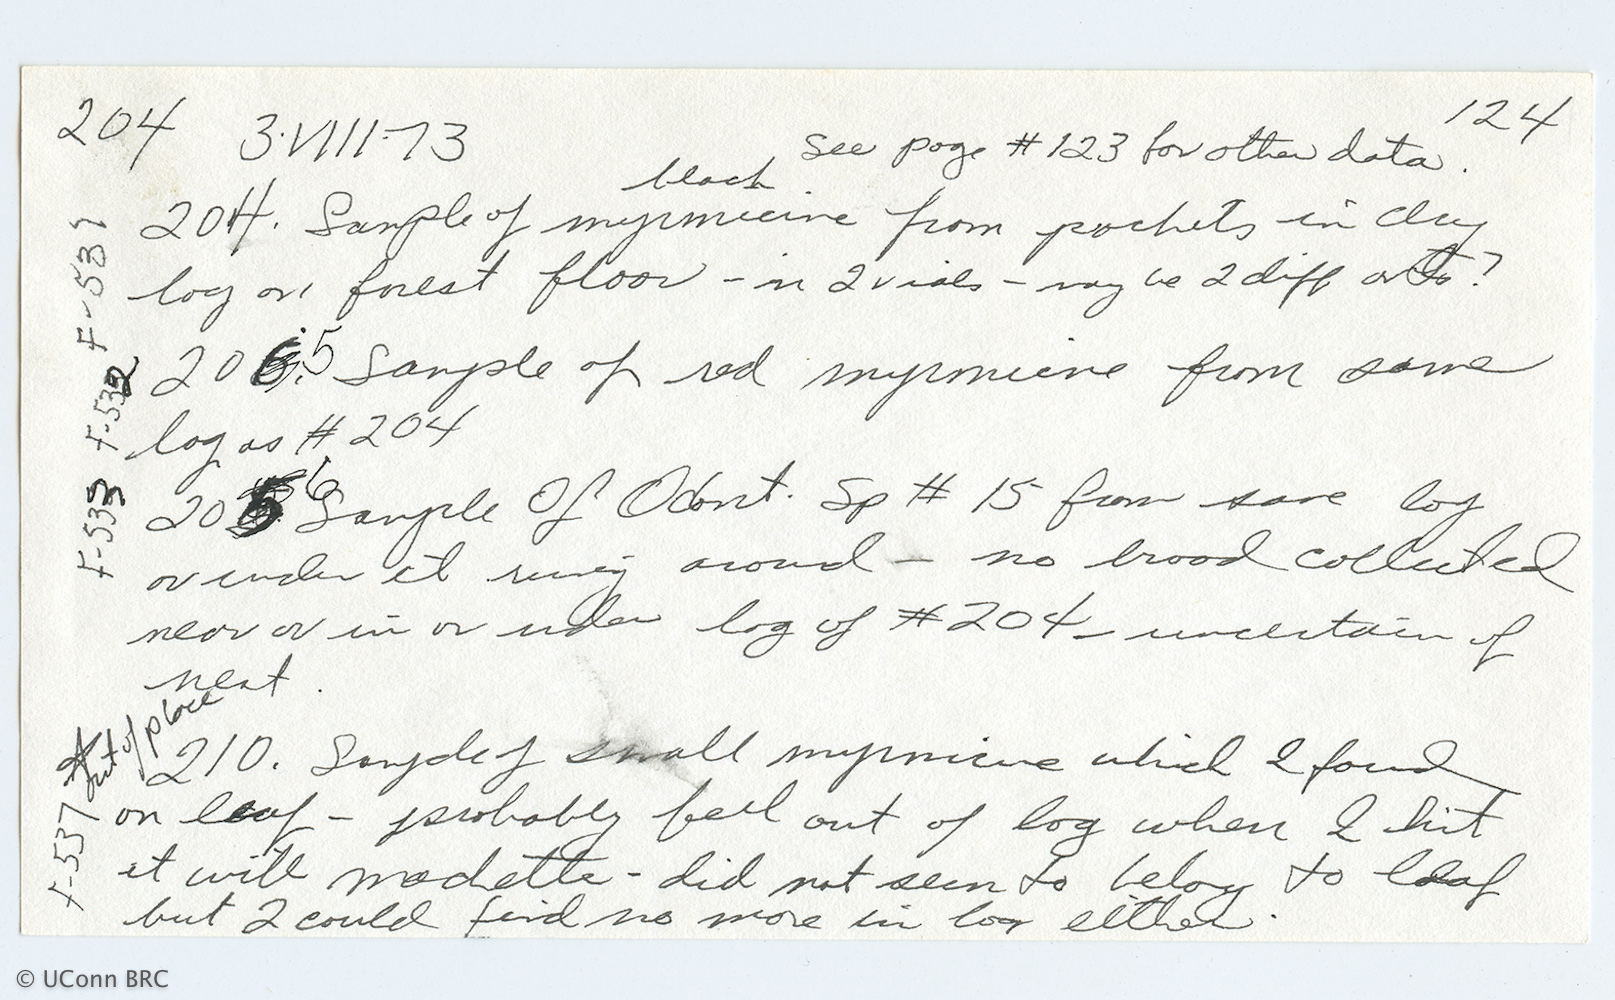 204 3·VIII·73 124
see page #123 for other data.
black
204. Sample of myrmicine from pockets in dry
log on forest floor - in 2 vials - may be 2 diff ants?
205 Sample of red myrmicine from same
log as #204
206 Sample Of Odont. Sp # 15 from same log
or under it runing around - no brood collected
near or in or under log of #204 - uncertain of
nest.
210. Sample of small myrmicine which I found
on leaf - probably fell out of log when I hit
it with machette - did not seem to belong to leaf
but I could find no more in log either.
F-531
F-532
F-533
F-537
out of place
© UConn BRC